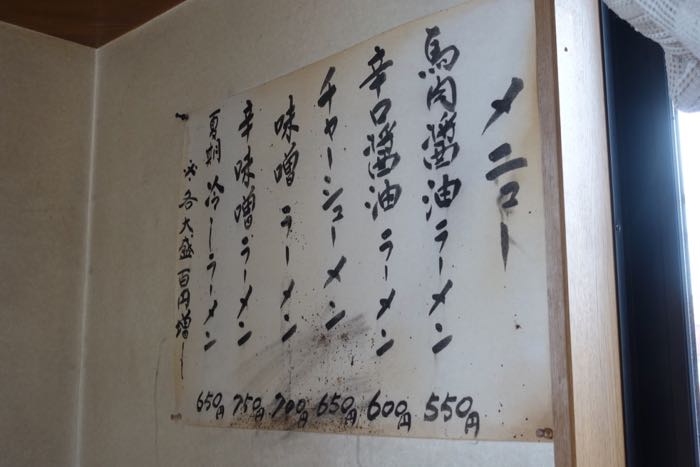 メニュー
馬肉醤油ラーメン 550円
辛口醤油ラーメン 600円
チャーシューメン 650円
味噌ラーメン 700円
辛味噌ラーメン 750円
夏期冷しラーメン 650円
※各大盛百円増し